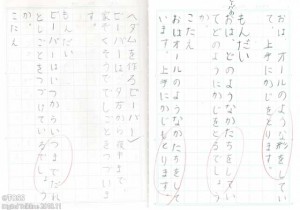 おは、オールのような形をして い
て、上手にかじをとります。
もんだい
おは、どのようなかたちをしてい
てどのようにかじをとるでしょう
か。
こたえ
おはオールのようなかたちをして
います。上手にかじをとります。
ダムを作るビーバー
ビーバーは、夕方から夜中まで、
家ぞくそうでてしごとをつづけま
す。
もんだい
ビーバーはいつからいつまでだれ
としごとをつづけているでしょう
か。
こたえ